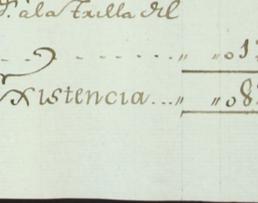 à la Trilla del
.......... „ „ 01
Existencia... „ „ 08